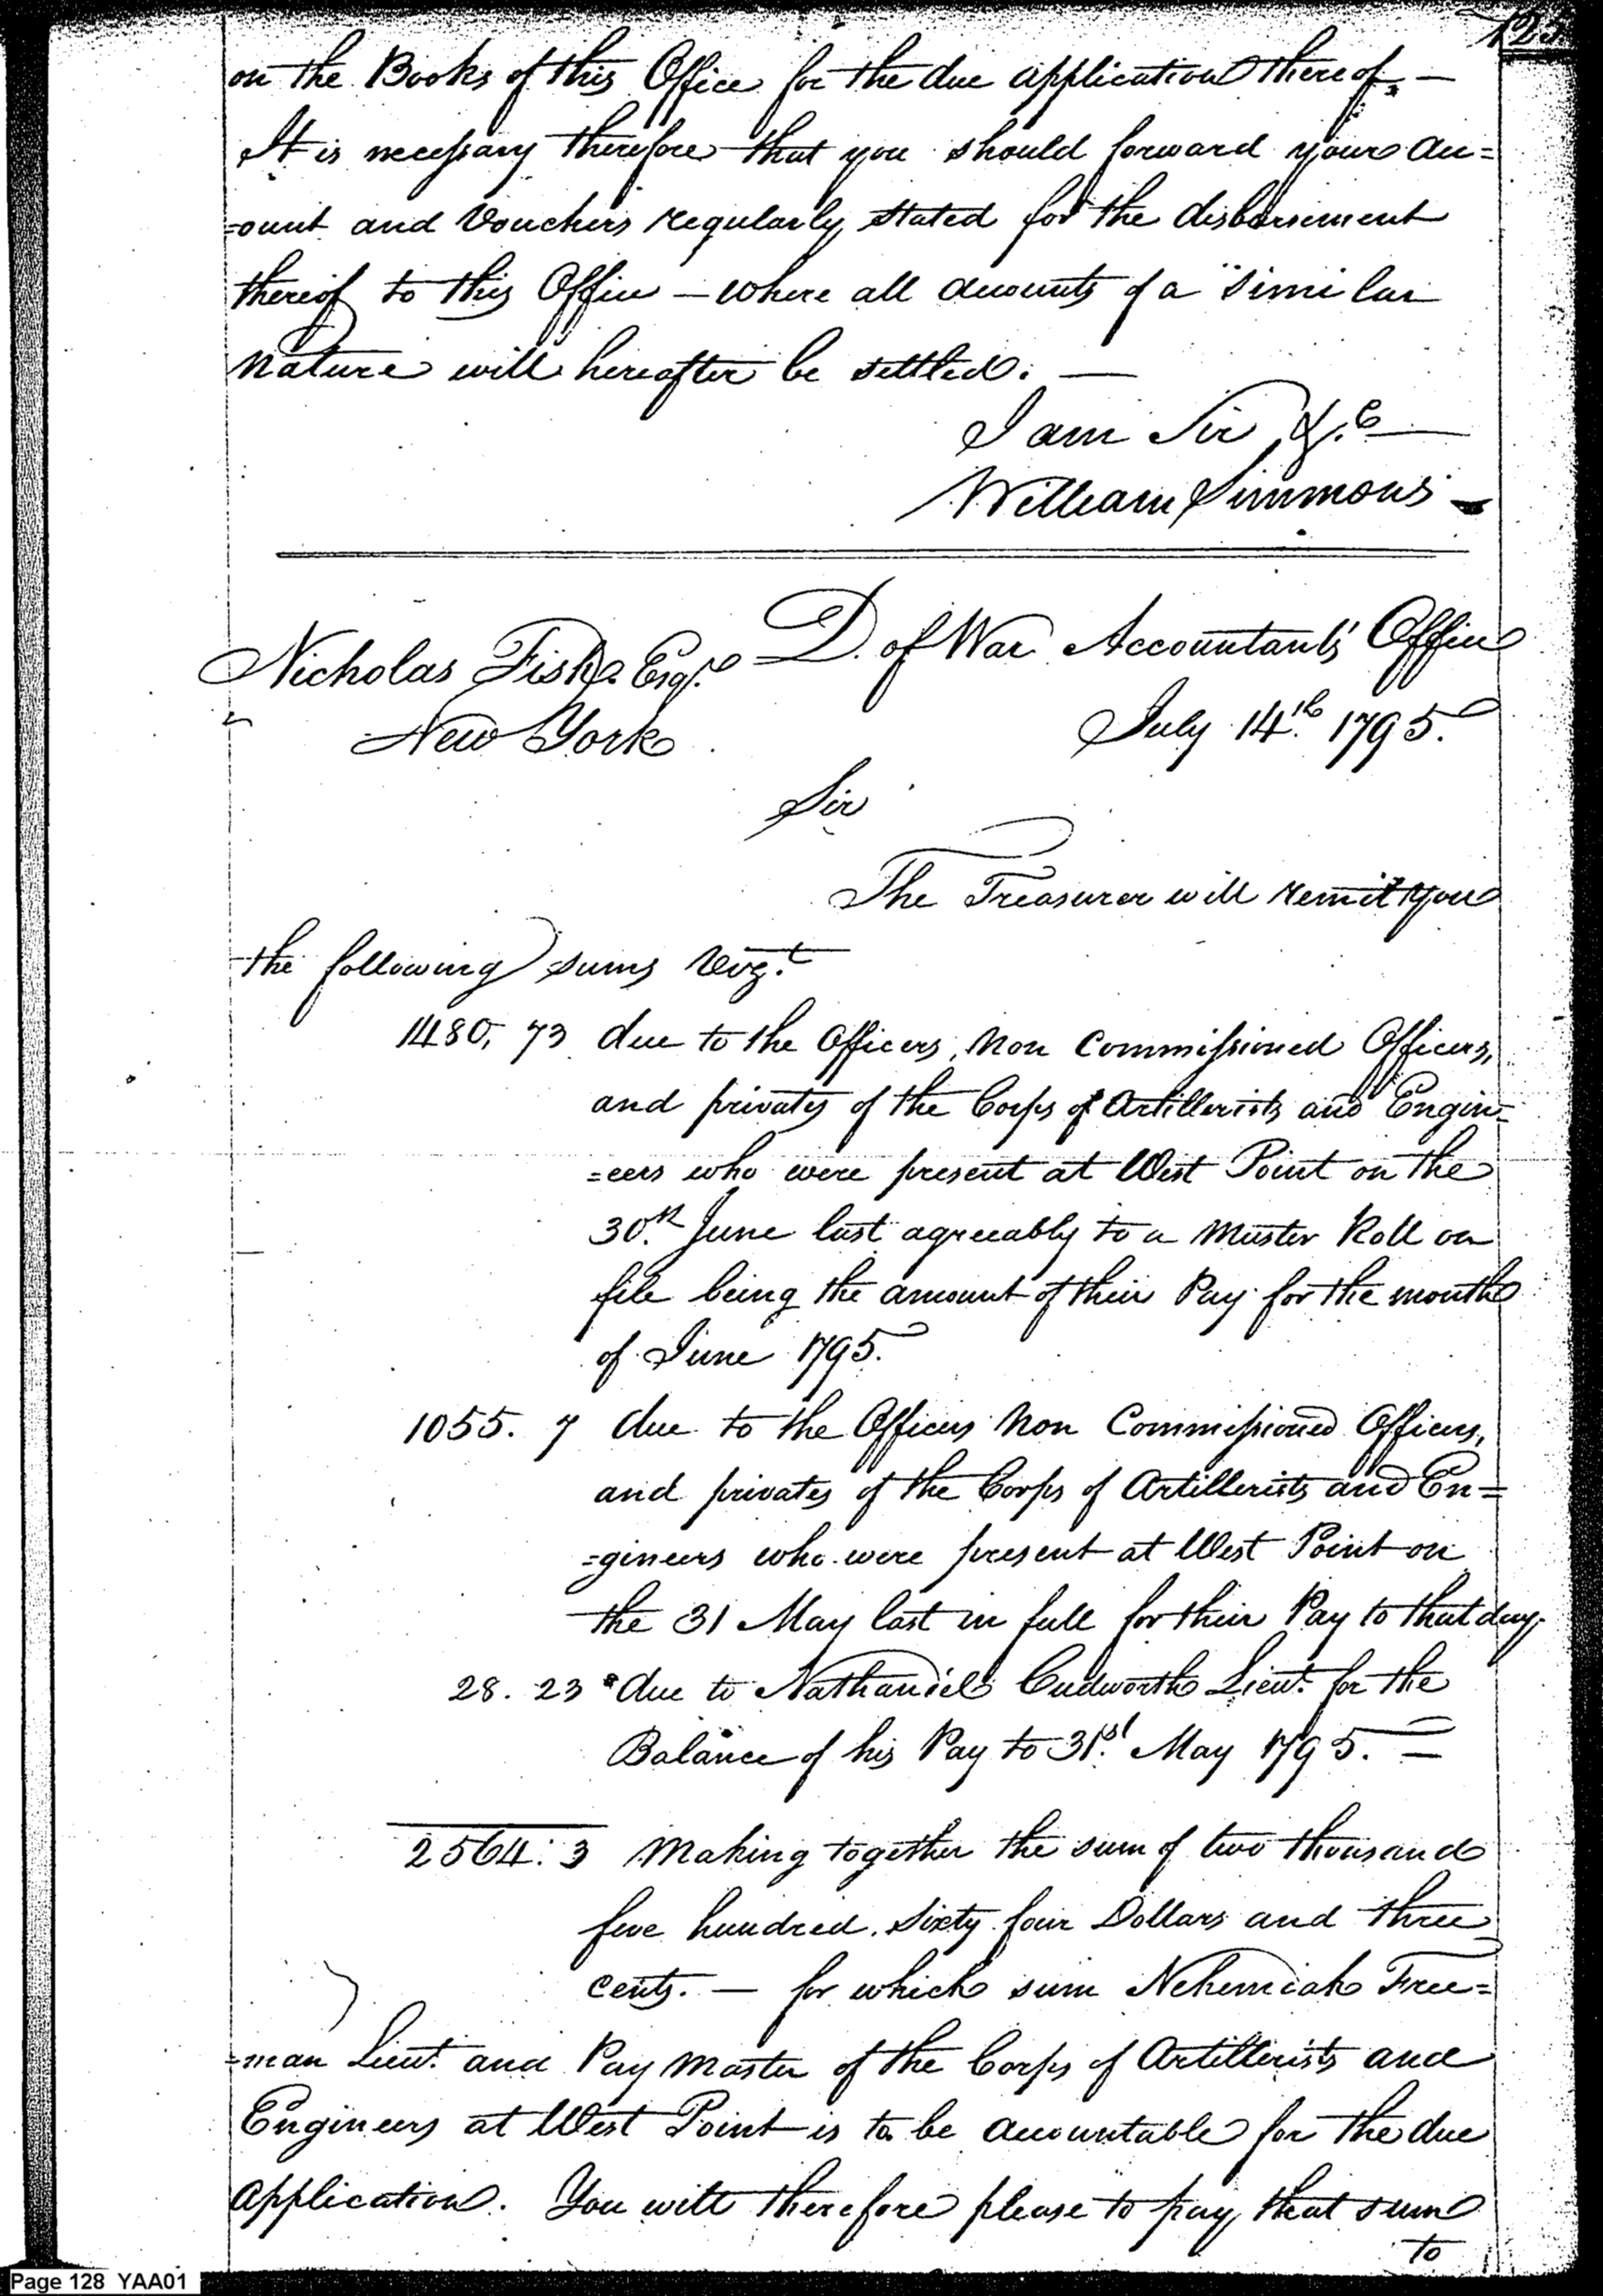 125
on the Books of this Office for the due application thereof. —
It is necessary therefore that you should forward your Ac=
=ount and Vouchers regularly stated for the disbursement
thereof to this Office — where all accounts of a similar
nature will hereafter be settled. —
I am Sir &.c —
William Simmons
Nicholas Fish Esqr. D. of War Accountants Office
New York July 14th. 1795.
Sir
The Treasurer will remit you
the following sums Vizt.
1480, 73 due to the Officers, Non Commissioned Officers,
and privates of the Corps of Artillerists and Engin=
=eers who were present at West Point on the
30th. June last agreeably to a Muster Roll on
file being the amount of their Pay for the month
of June 1795.
1055. 7 due to the Officers Non Commissioned Officers,
and privates of the Corps of Artillerists and En=
=gineers who were present at West Point on
the 31 May last in full for their Pay to that day.
28. 23 due to Nathaniel Cudworth Lieut. for the
Balance of his Pay to 31st. May 1795. —
2564. 3 Making together the sum of two thousand
five hundred sixty four Dollars and three
cents. — for which sum Nehemiah Free=
=man Lieut. and Pay Master of the Corps of Artillerists and
Engineers at West Point is to be accountable for the due
application. You will therefore please to pay that sum
to
Page 128 YAA01